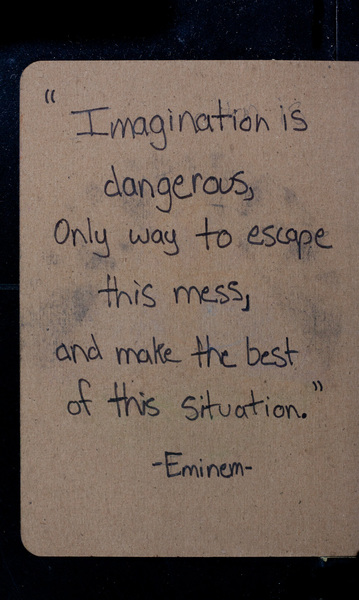 “ Imagination is
dangerous,
Only way to escape
this mess,
and make the best
of this situation.”
-Eminem-